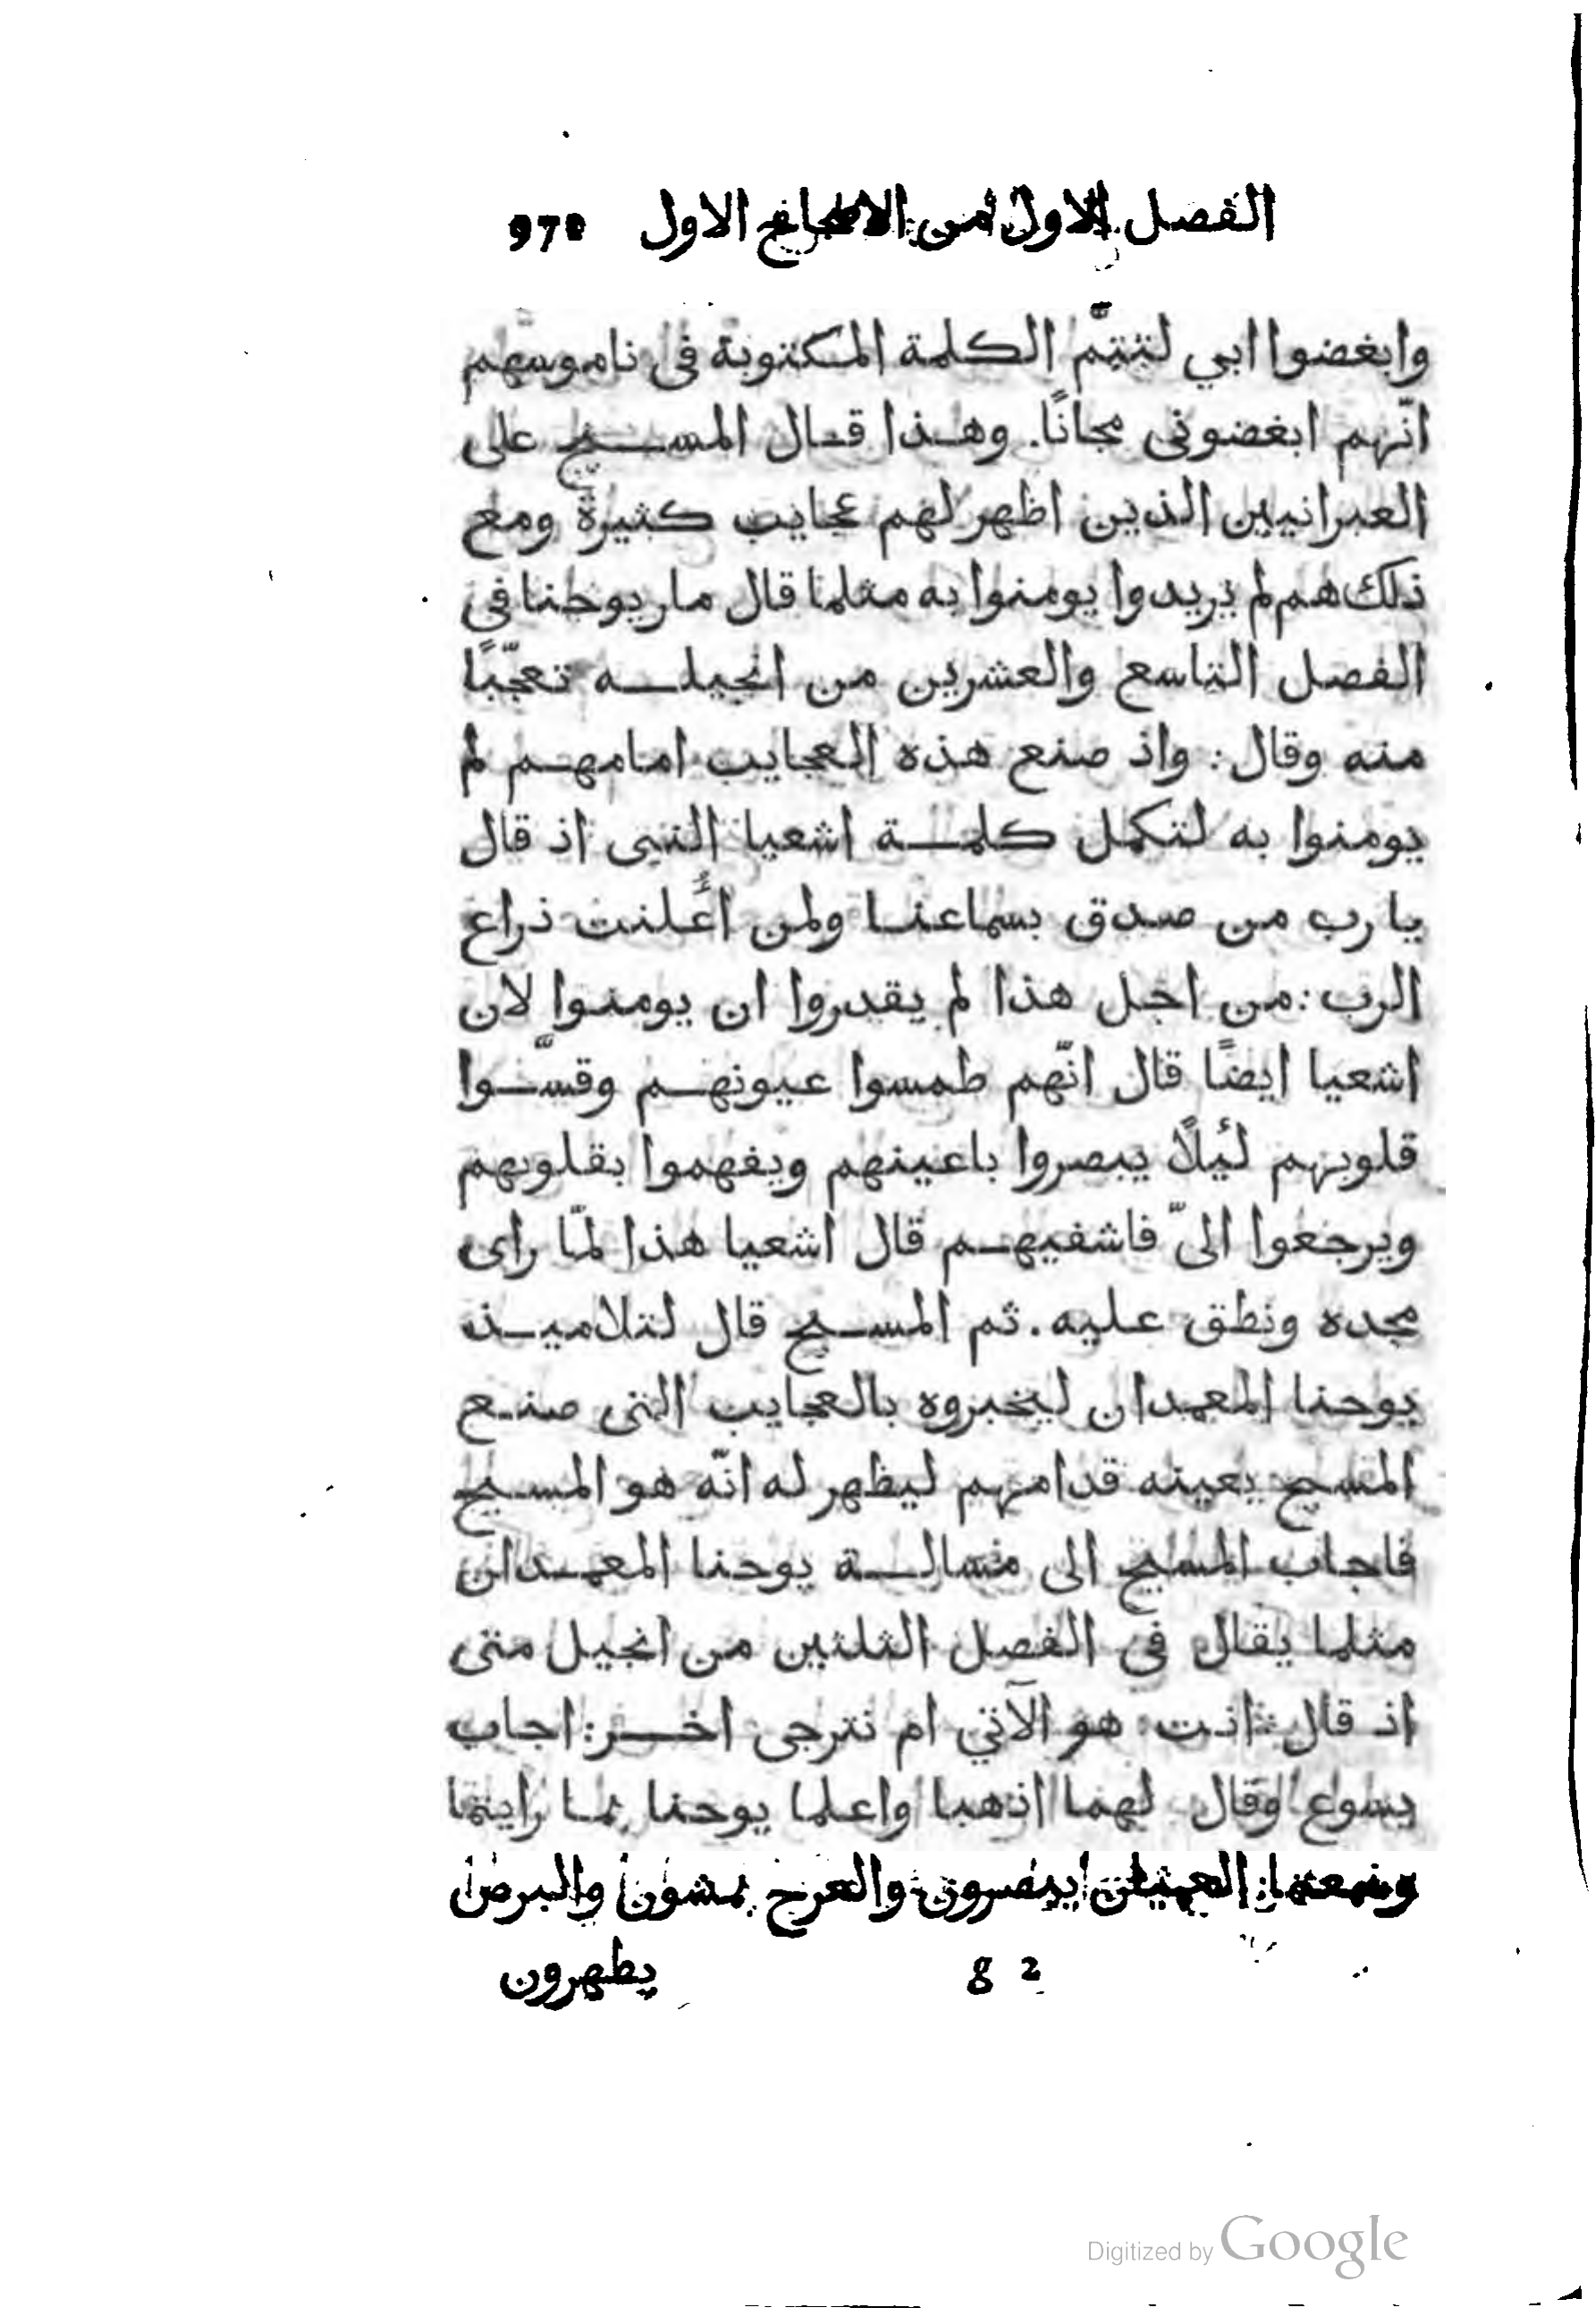 الفصل الاول من الاصحاح الاول 978
وابغضوا ابي لتتمّ الكلمة المكتوبة فى ناموسهم
انّهم ابغضونى مجانًا. وهذا قال المسيح على
العبرانيين الذين اظهر لهم عجايب كثيرة ومع
ذلك هم لم يريدوا يومنوا به مثلما قال مار يوحنا فى
الفصل التاسع والعشرين من انجيله تعجّبًا
منه وقال: واذ صنع هذه العجايب امامهم لم
يومنوا به لتكمل كلمة اشعيا النبى اذ قال
يا رب من صدق بسماعنا ولمن أُعلنت ذراع
الرب: من اجل هذا لم يقدروا ان يومنوا لان
اشعيا ايضًا قال انّهم طمسوا عيونهم وقسّوا
قلوبهم لئلّا يبصروا باعينهم ويفهموا بقلوبهم
ويرجعوا الىّ فاشفيهم قال اشعيا هذا لمّا راى
مجده ونطق عليه. ثم المسيح قال لتلاميذ
يوحنا المعمدان ليخبروه بالعجايب التى صنع
المسيح بعينه قدامهم ليظهر له انّه هو المسيح
فاجاب المسيح الى مسالة يوحنا المعمدان
مثلما يقال فى الفصل الثلثين من انجيل متى
اذ قال: انت هو الآتي ام نترجى اخر: اجاب
يسوع وقال لهما اذهبا واعلما يوحنا بما رايتما
وسمعتما: العميان يبصرون والعرج يمشون والبرص
8 2 يطهرون
Digitized by Google